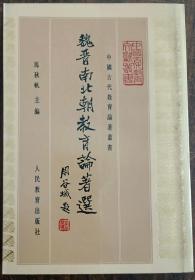 中國古代教育論著叢書
魏晉南北朝教育論著選
周谷城題
馬秋帆 主編
人民教育出版社